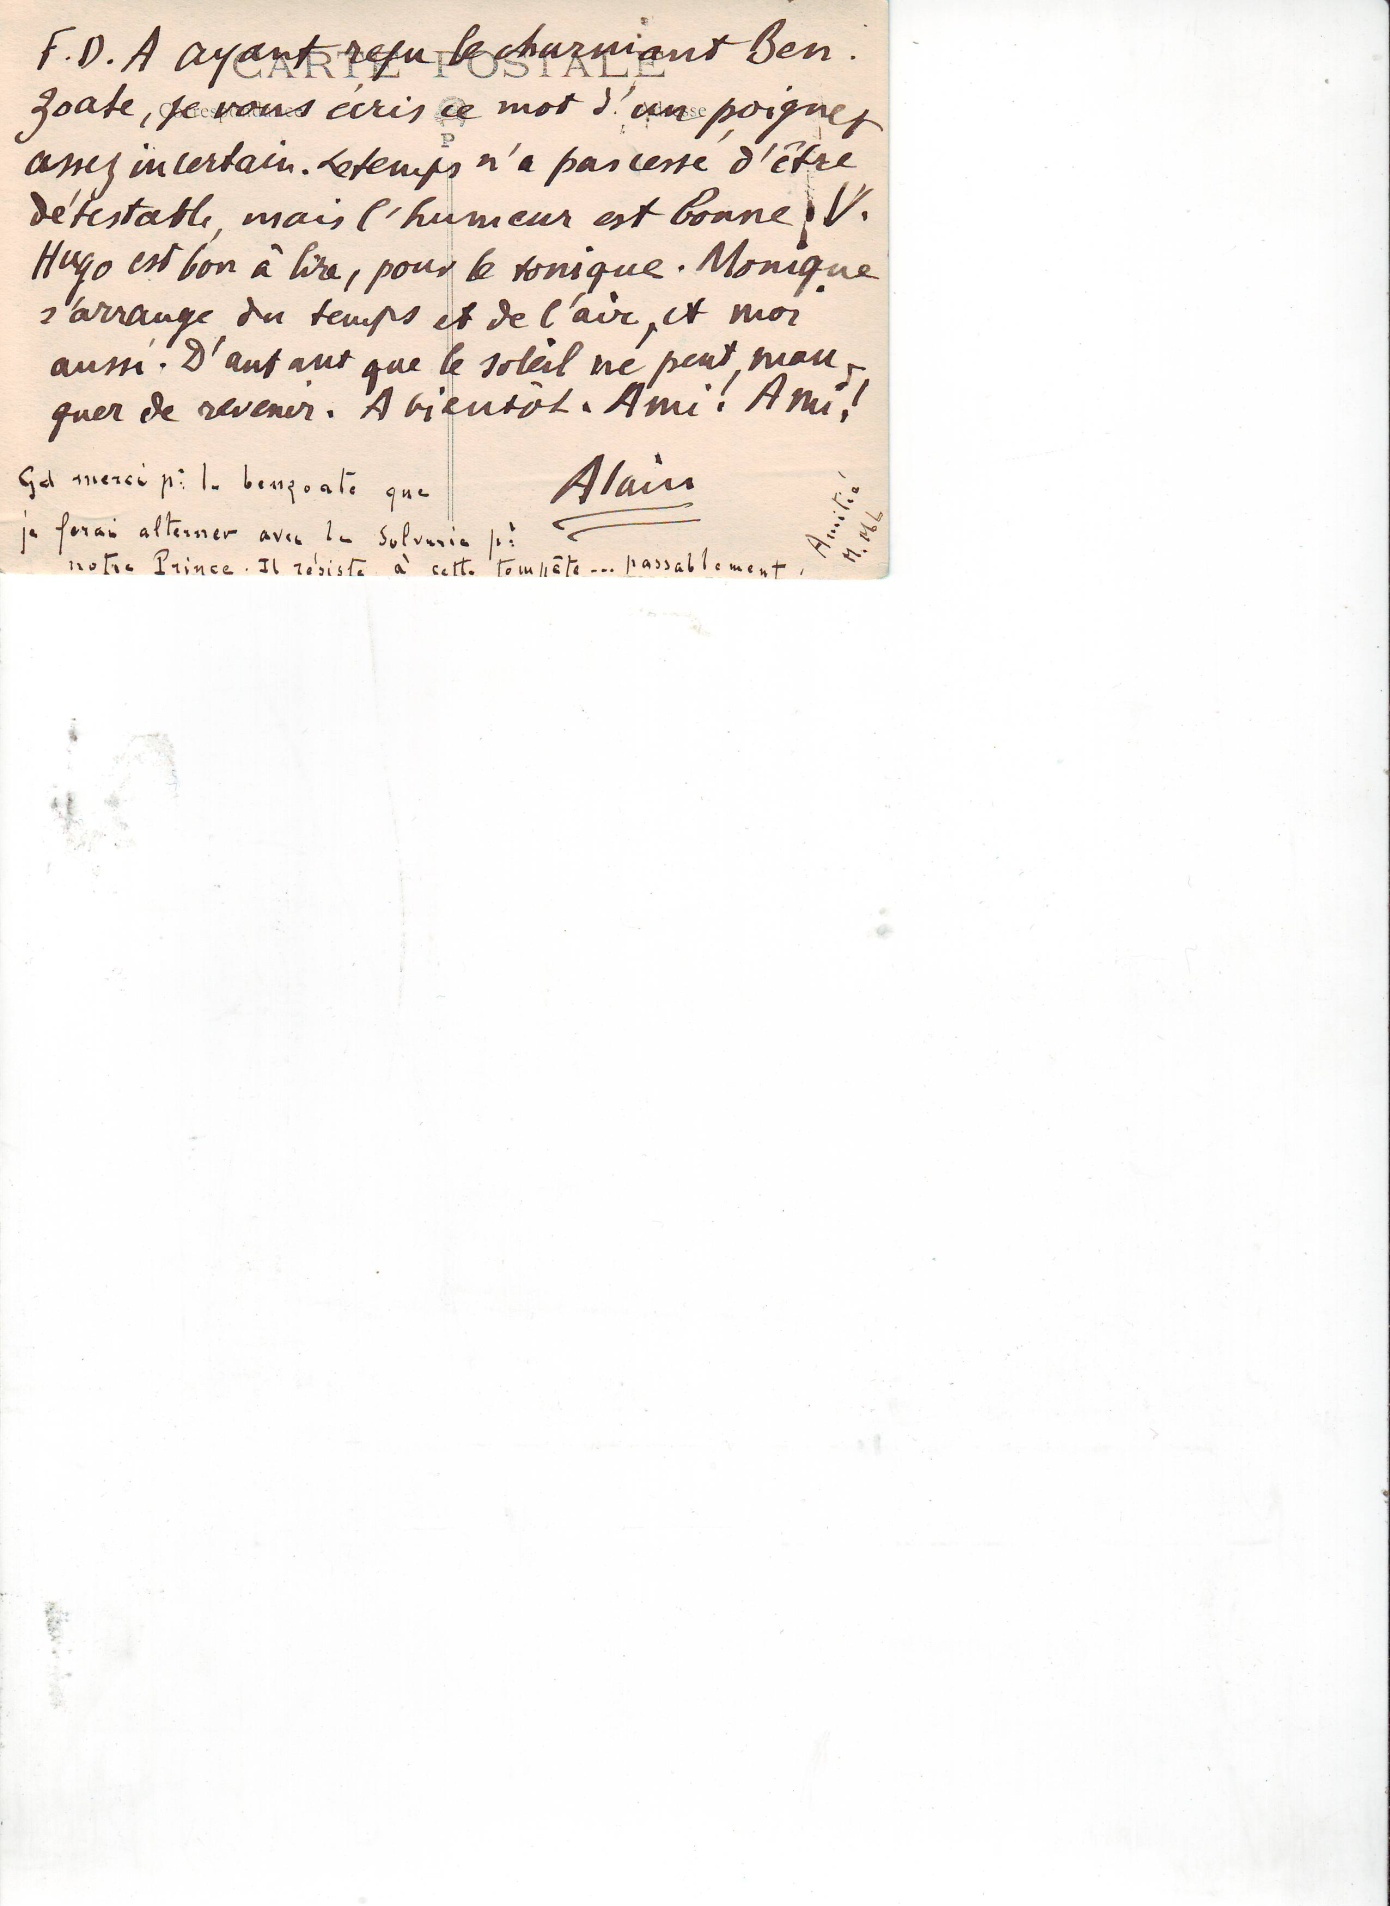 CARTE POSTALE
Correspondance
Adresse
P
F.D. A ayant reçu le charmant Ben.
zoate, je vous écris ce mot d'un poignet
assez incertain. Le temps n'a pas cessé d'être
détestable, mais l'humeur est bonne. V.
Hugo est bon à lire, pour le tonique. Monique
s'arrange du temps et de l'air, et moi
aussi. D'autant que le soleil ne peut man-
quer de revenir. A bientôt. Ami! Ami!
Alain
Gd merci pr le benzoate que
je ferai alterner avec la Solvurie pr
notre Prince. Il résiste à cette tempête... passablement.
Amitié